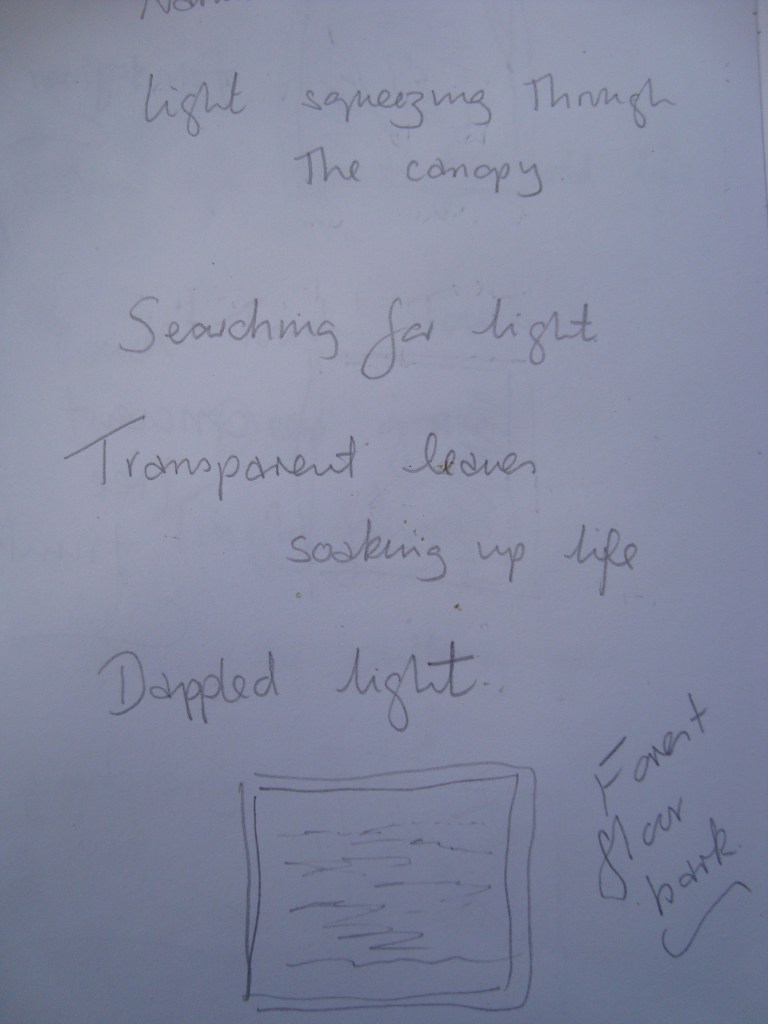 light squeezing Through
The canopy
Searching for light
Transparent leaves
soaking up life
Dappled light.
Forest
floor
bark